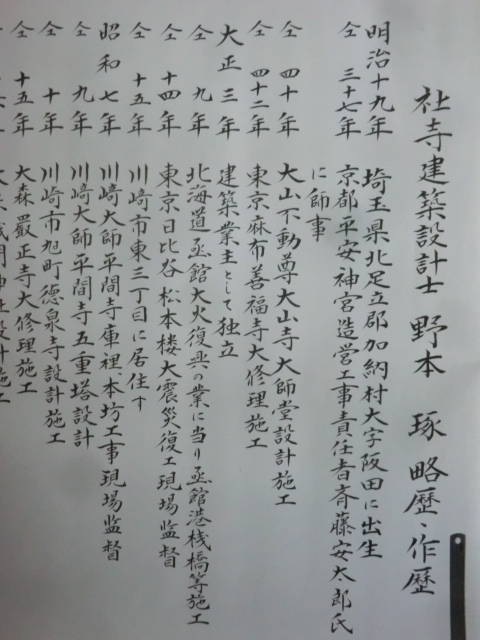 社寺建築設計士 野本 琢 略歴、作歴
明治十九年 埼玉県北足立郡加納村大字阪田に出生
仝 三十七年 京都平安神宮造営工事責任者斉藤安太郎氏
に師事
仝 四十年 大山不動尊大山寺大師堂設計施工
仝 四十二年 東京麻布善福寺大修理施工
大正三年 建築業主として独立
仝 九年 北海道函館大火復興の業に当り函館港桟橋等施工
仝 十四年 東京日比谷松本楼大震災復工現場監督
仝 十五年 川崎市東三丁目に居住す
昭和七年 川崎大師平間寺庫裡、本坊工事現場監督
仝 九年 川崎大師平間寺五重塔設計
仝 十年 川崎市旭町徳泉寺設計施工
仝 十五年 大森厳正寺大修理施工